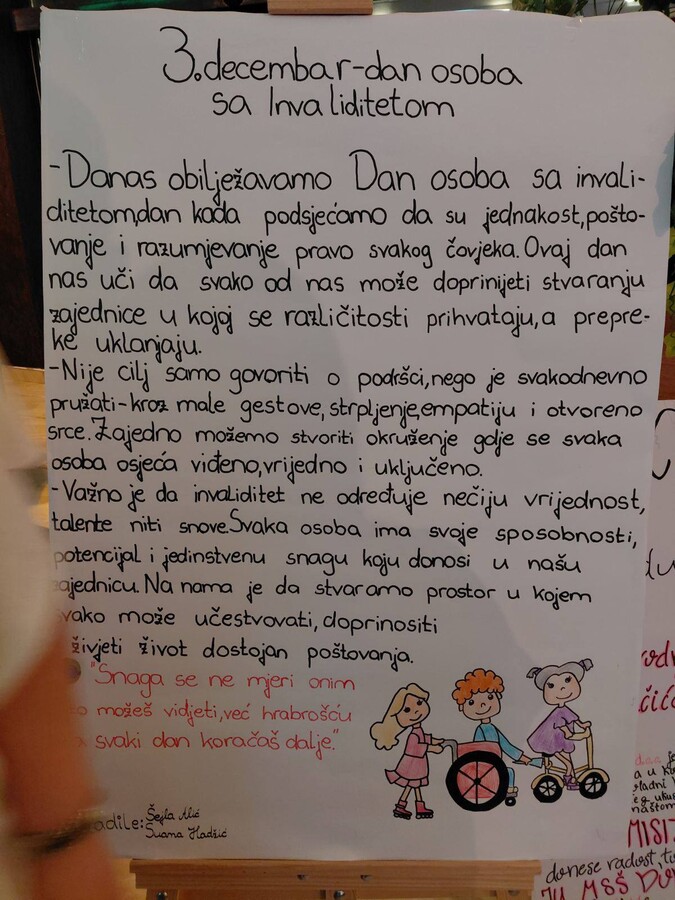 3. decembar-dan osoba
sa Invaliditetom
-Danas obilježavamo Dan osoba sa invali-
ditetom,dan kada podsjećamo da su jednakost,pošto-
vanje i razumjevanje pravo svakog čovjeka. Ovaj dan
nas uči da svako od nas može doprinijeti stvaranju
zajednice u kojoj se različitosti prihvataju,a prepre-
ke uklanjaju.
-Nije cilj samo govoriti o podršci,nego je svakodnevno
pružati-kroz male gestove, strpljenje,empatiju i otvoreno
srce. Zajedno možemo stvoriti okruženje gdje se svaka
osoba osjeća viđeno,vrijedno i uključeno.
-Važno je da invaliditet ne određuje nečiju vrijednost,
talente niti snove.Svaka osoba ima svoje sposobnosti,
potencijal i jedinstvenu snagu koju donosi u našu
zajednicu. Na nama je da stvaramo prostor u kojem
svako može učestvovati, doprinositi
živjeti život dostojan poštovanja.
"Snaga se ne mjeri onim
možeš vidjeti,već hrabrošću
svaki dan koračaš dalje."
Šejla Alić
Hadžić
MISI
donese radost,
JU MSŠ